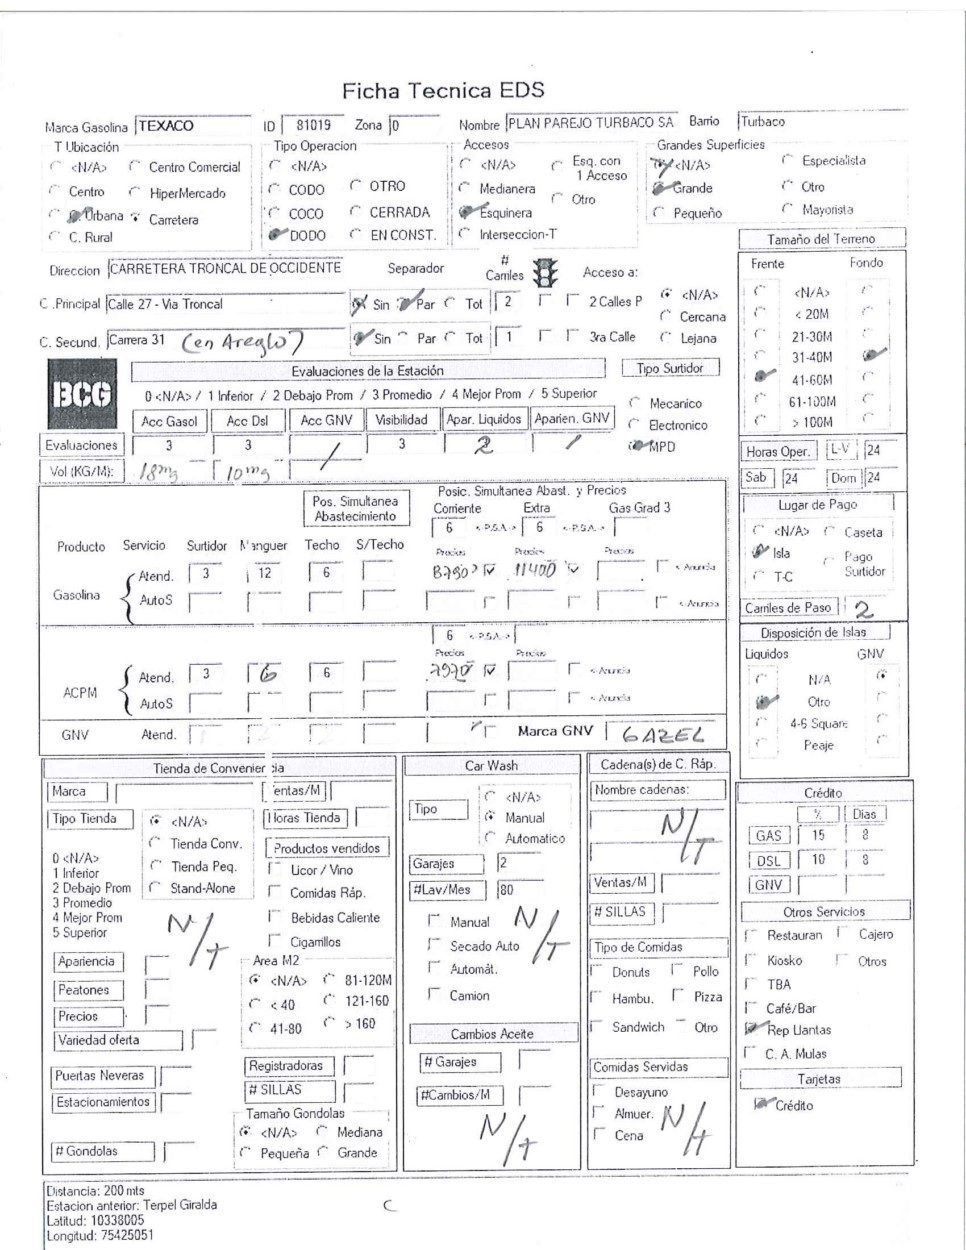 Ficha Tecnica EDS
Marca Gasolina TEXACO ID 81019 Zona 0 Nombre PLAN PAREJO TURBACO SA Barrio Turbaco
T Ubicación
<N/A> Centro Comercial
Centro HiperMercado
Urbana Carretera
C. Rural
Tipo Operacion
<N/A>
CODO OTRO
COCO CERRADA
DODO EN CONST.
Accesos
<N/A> Esq. con 1 Acceso
Medianera
Otro
Esquinera
Interseccion-T
Grandes Superficies
<N/A> Especialista
Grande Otro
Pequeño Mayorista
Direccion CARRETERA TRONCAL DE OCCIDENTE Separador # Carriles Acceso a:
C .Principal Calle 27 - Via Troncal Sin Par Tot 2 2 Calles P
C. Secund. Carrera 31 (en Areglo) Sin Par Tot 1 3ra Calle
<N/A>
Cercana
Lejana
Tamaño del Terreno
Frente Fondo
<N/A>
< 20M
21-30M
31-40M
41-60M
61-100M
> 100M
BCG
Evaluaciones de la Estación
0 <N/A> / 1 Inferior / 2 Debajo Prom / 3 Promedio / 4 Mejor Prom / 5 Superior
Acc Gasol Acc Dsl Acc GNV Visibilidad Apar. Liquidos Aparien. GNV
Evaluaciones 3 3 / 3 2 /
Vol (KG/M): 18mg 10mg
Tipo Surtidor
Mecanico
Electronico
MPD
Horas Oper. L-V 24
Sab 24 Dom 24
Lugar de Pago
<N/A> Caseta
Isla Pago Surtidor
T-C
Carriles de Paso 2
Pos. Simultanea Abastecimiento
Posic. Simultanea Abast. y Precios
Corriente Extra Gas Grad 3
6 <-P.S.A.-> 6 <-P.S.A.->
Producto Servicio Surtidor Manguer Techo S/Techo Precios Precios Precios
Gasolina Atend. 3 12 6 11400 <-Anuncia
AutoS <-Anuncia
6 <-P.S.A.->
Precios Precios
ACPM Atend. 3 6 6 7970 <-Anuncia
AutoS <-Anuncia
GNV Atend. Marca GNV GAZEL
Disposición de Islas
Liquidos GNV
N/A
Otro
4-6 Square
Peaje
Tienda de Conveniencia
Marca Ventas/M
Tipo Tienda <N/A> Horas Tienda
Tienda Conv.
Tienda Peq.
Stand-Alone
0 <N/A>
1 Inferior
2 Debajo Prom
3 Promedio
4 Mejor Prom
5 Superior
N/T
Productos vendidos
Licor / Vino
Comidas Ráp.
Bebidas Caliente
Cigarrillos
Apariencia
Peatones
Precios
Variedad oferta
Area M2
<N/A> 81-120M
< 40 121-160
41-80 > 160
Puertas Neveras
Estacionamientos
# Gondolas
Registradoras
# SILLAS
Tamaño Gondolas
<N/A> Mediana
Pequeña Grande
Car Wash
Tipo <N/A>
Manual
Automatico
Garajes 2
#Lav/Mes 80
Manual
Secado Auto
Automát.
Camion
N/T
Cambios Aceite
# Garajes
#Cambios/M
N/T
Cadena(s) de C. Ráp.
Nombre cadenas:
N/T
Ventas/M
# SILLAS
Tipo de Comidas
Donuts Pollo
Hambu. Pizza
Sandwich Otro
Comidas Servidas
Desayuno
Almuer.
Cena
N/T
Crédito
% Dias
GAS 15 8
DSL 10 8
GNV
Otros Servicios
Restauran Cajero
Kiosko Otros
TBA
Café/Bar
Rep Llantas
C. A. Mulas
Tarjetas
Crédito
Distancia: 200 mts
Estacion anterior: Terpel Giralda
Latitud: 10338005
Longitud: 75425051